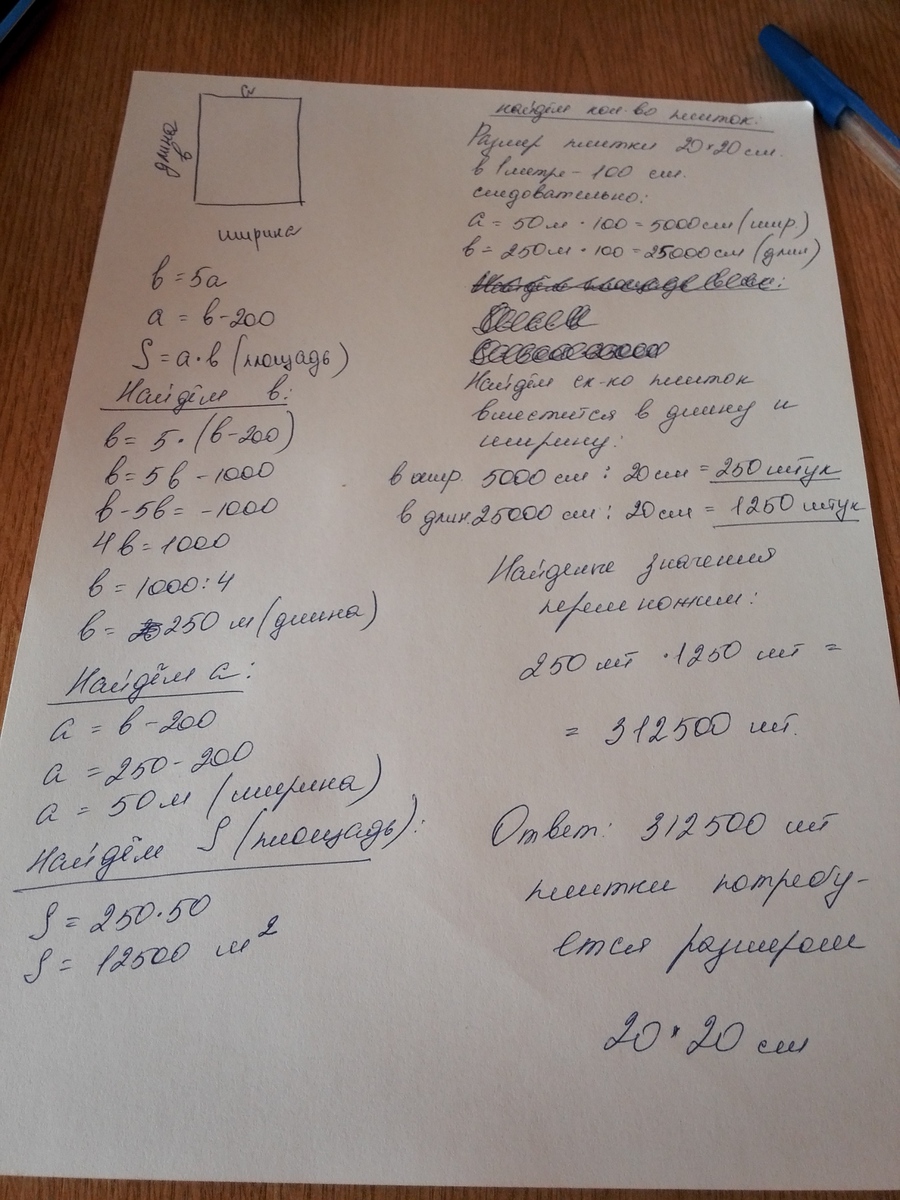 а
длина
в
ширина
в = 5а
а = в - 200
S = а · в (площадь)
Найдём в:
в = 5 · (в - 200)
в = 5в - 1000
в - 5в = - 1000
4в = 1000
в = 1000 : 4
в = 250 м (длина)
Найдём а:
а = в - 200
а = 250 - 200
а = 50 м (ширина)
Найдём S (площадь):
S = 250 · 50
S = 12500 м²
найдём кол-во плиток:
Размер плитки 20 × 20 см.
в 1 метре - 100 см.
следовательно:
а = 50 м · 100 = 5000 см (шир)
в = 250 м · 100 = 25000 см (длин)
Найдём ск-ко плиток
вместится в длину и
ширину:
в шир. 5000 см : 20 см = 250 штук
в длин. 25000 см : 20 см = 1250 штук
Найденые значения
перемножим:
250 шт · 1250 шт =
= 312500 шт.
Ответ: 312500 шт
плитки потребу-
ется размером
20 × 20 см